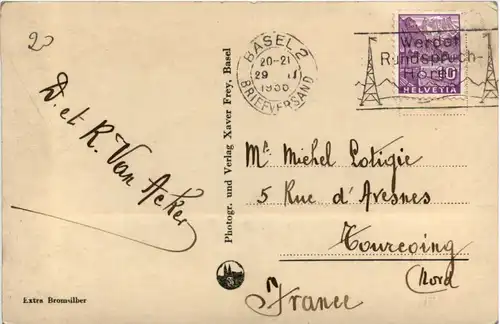 20
BASEL 2
20-21
29 II
1936
BRIEFVERSAND
Werdet
Rundspruch-
Hörer
10
HELVETIA
D. et R. Van Acker
Photogr. und Verlag Xaver Frey, Basel
Mr Michel Lotigie
5 Rue d'Avesnes
Tourcoing
(Nord
France
Extra Bromsilber